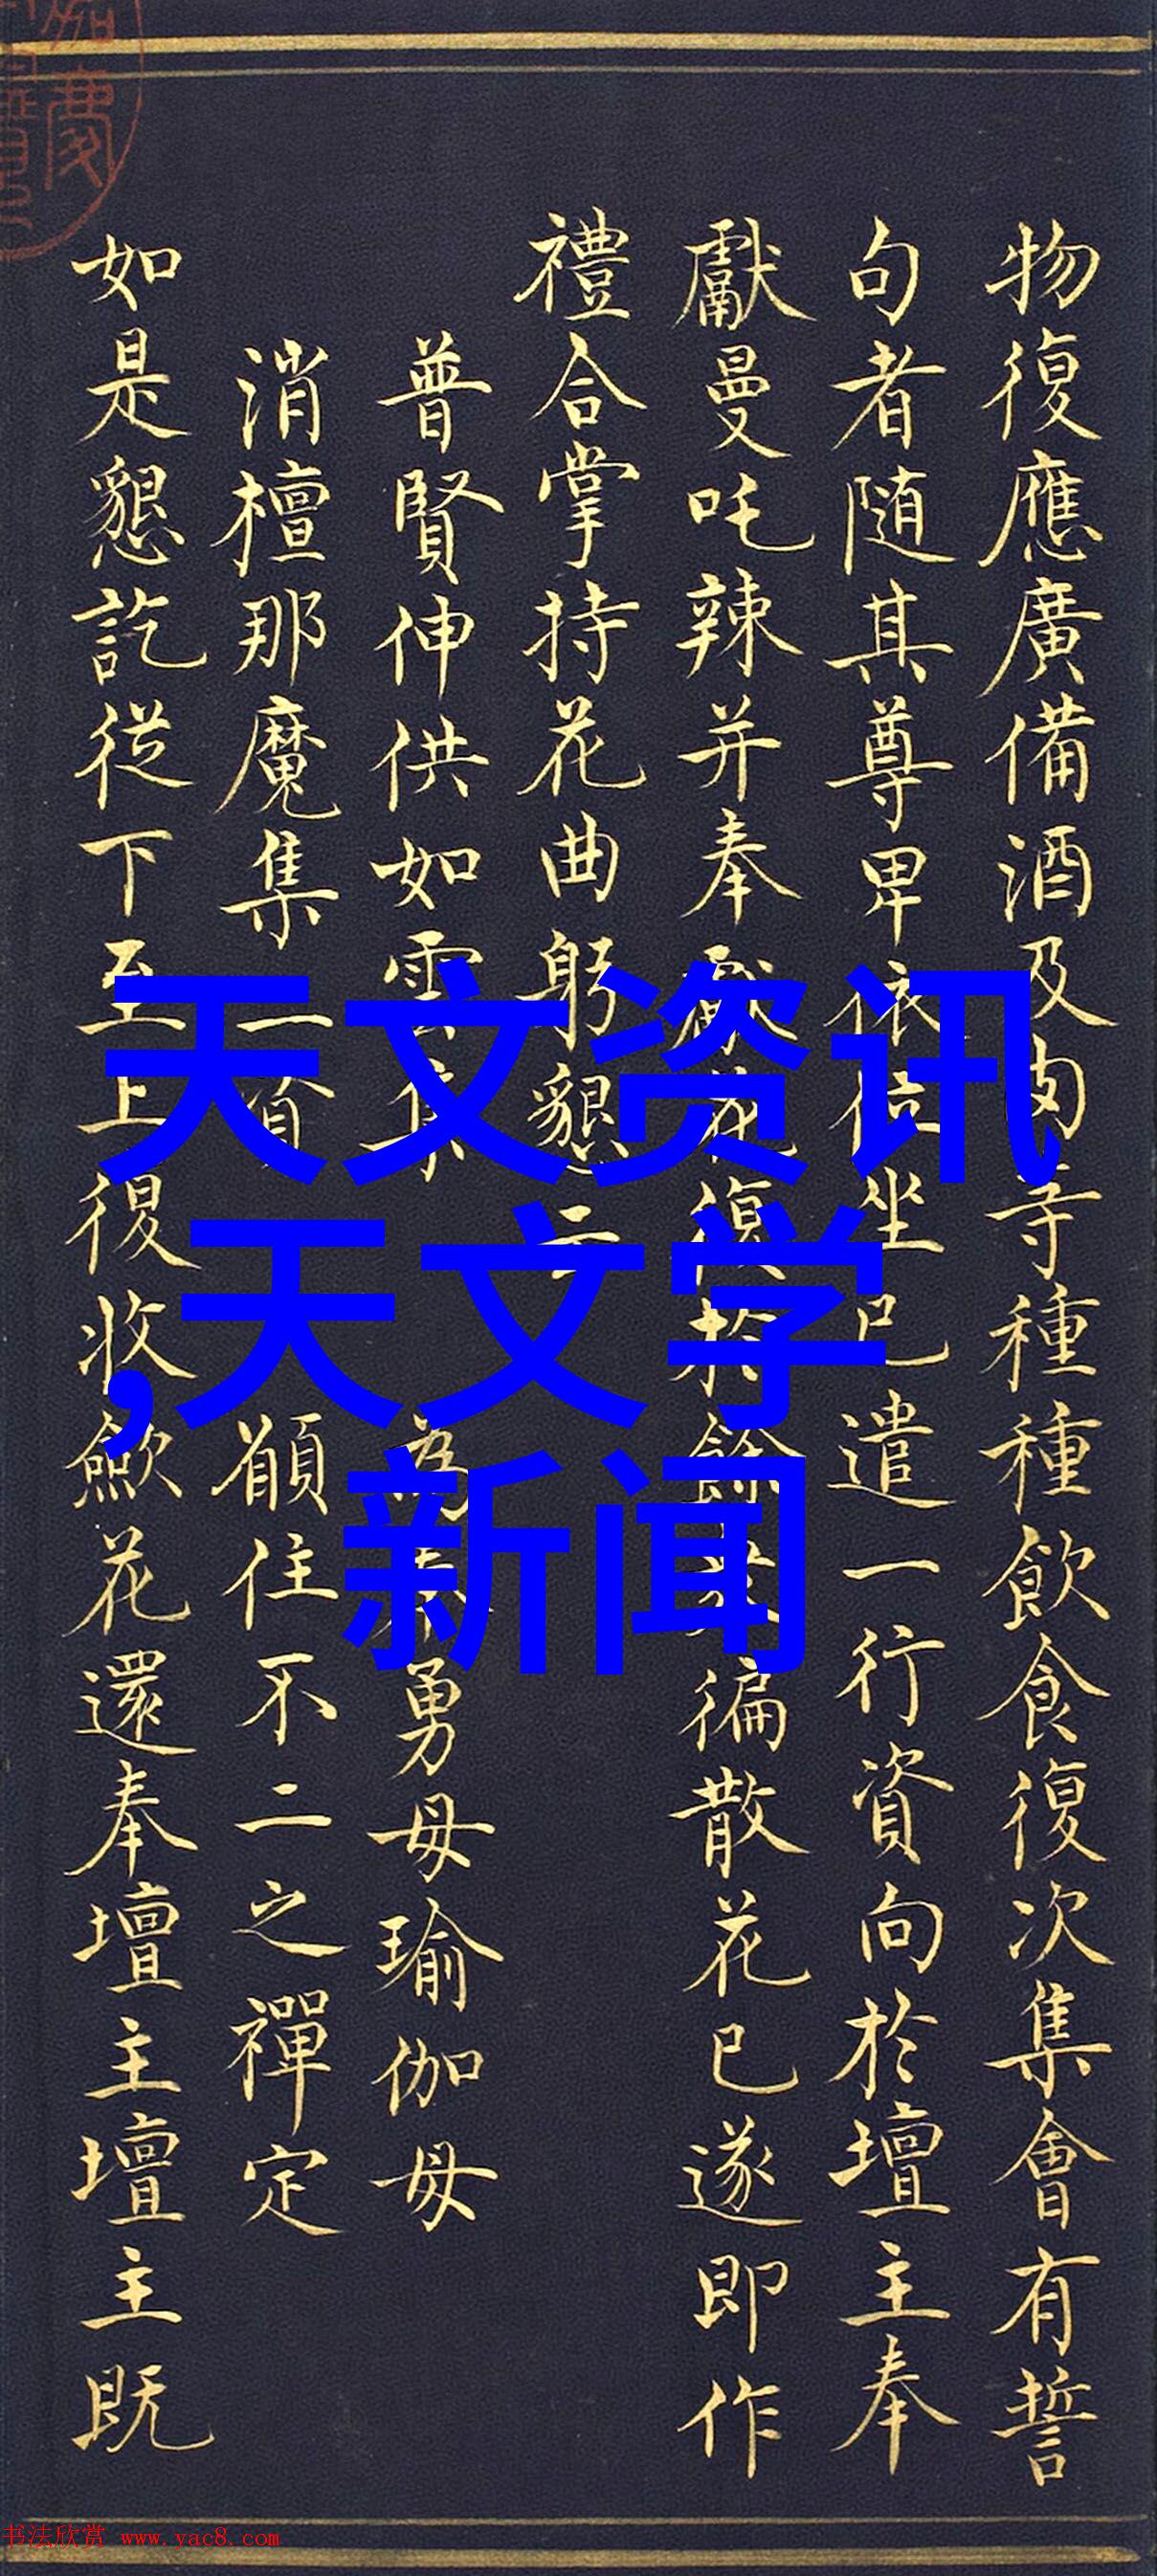 物復應廣備酒及肉等種種飲食復次集會有誓
句者随其尊卑依位坐已遣一行資向於壇主奉
獻曼吒辣并奉獻花復於餘衆徧散花已遂即作
禮合掌持花曲躬懇云
普賢伸供如雲集 為末勇母瑜伽母
消檀那魔集一資 願住不二之禪定
如是懇訖從下至上復收歛花還奉壇主壇主既
天文资讯
,天文学
新闻
书法欣赏 www.yac8.com